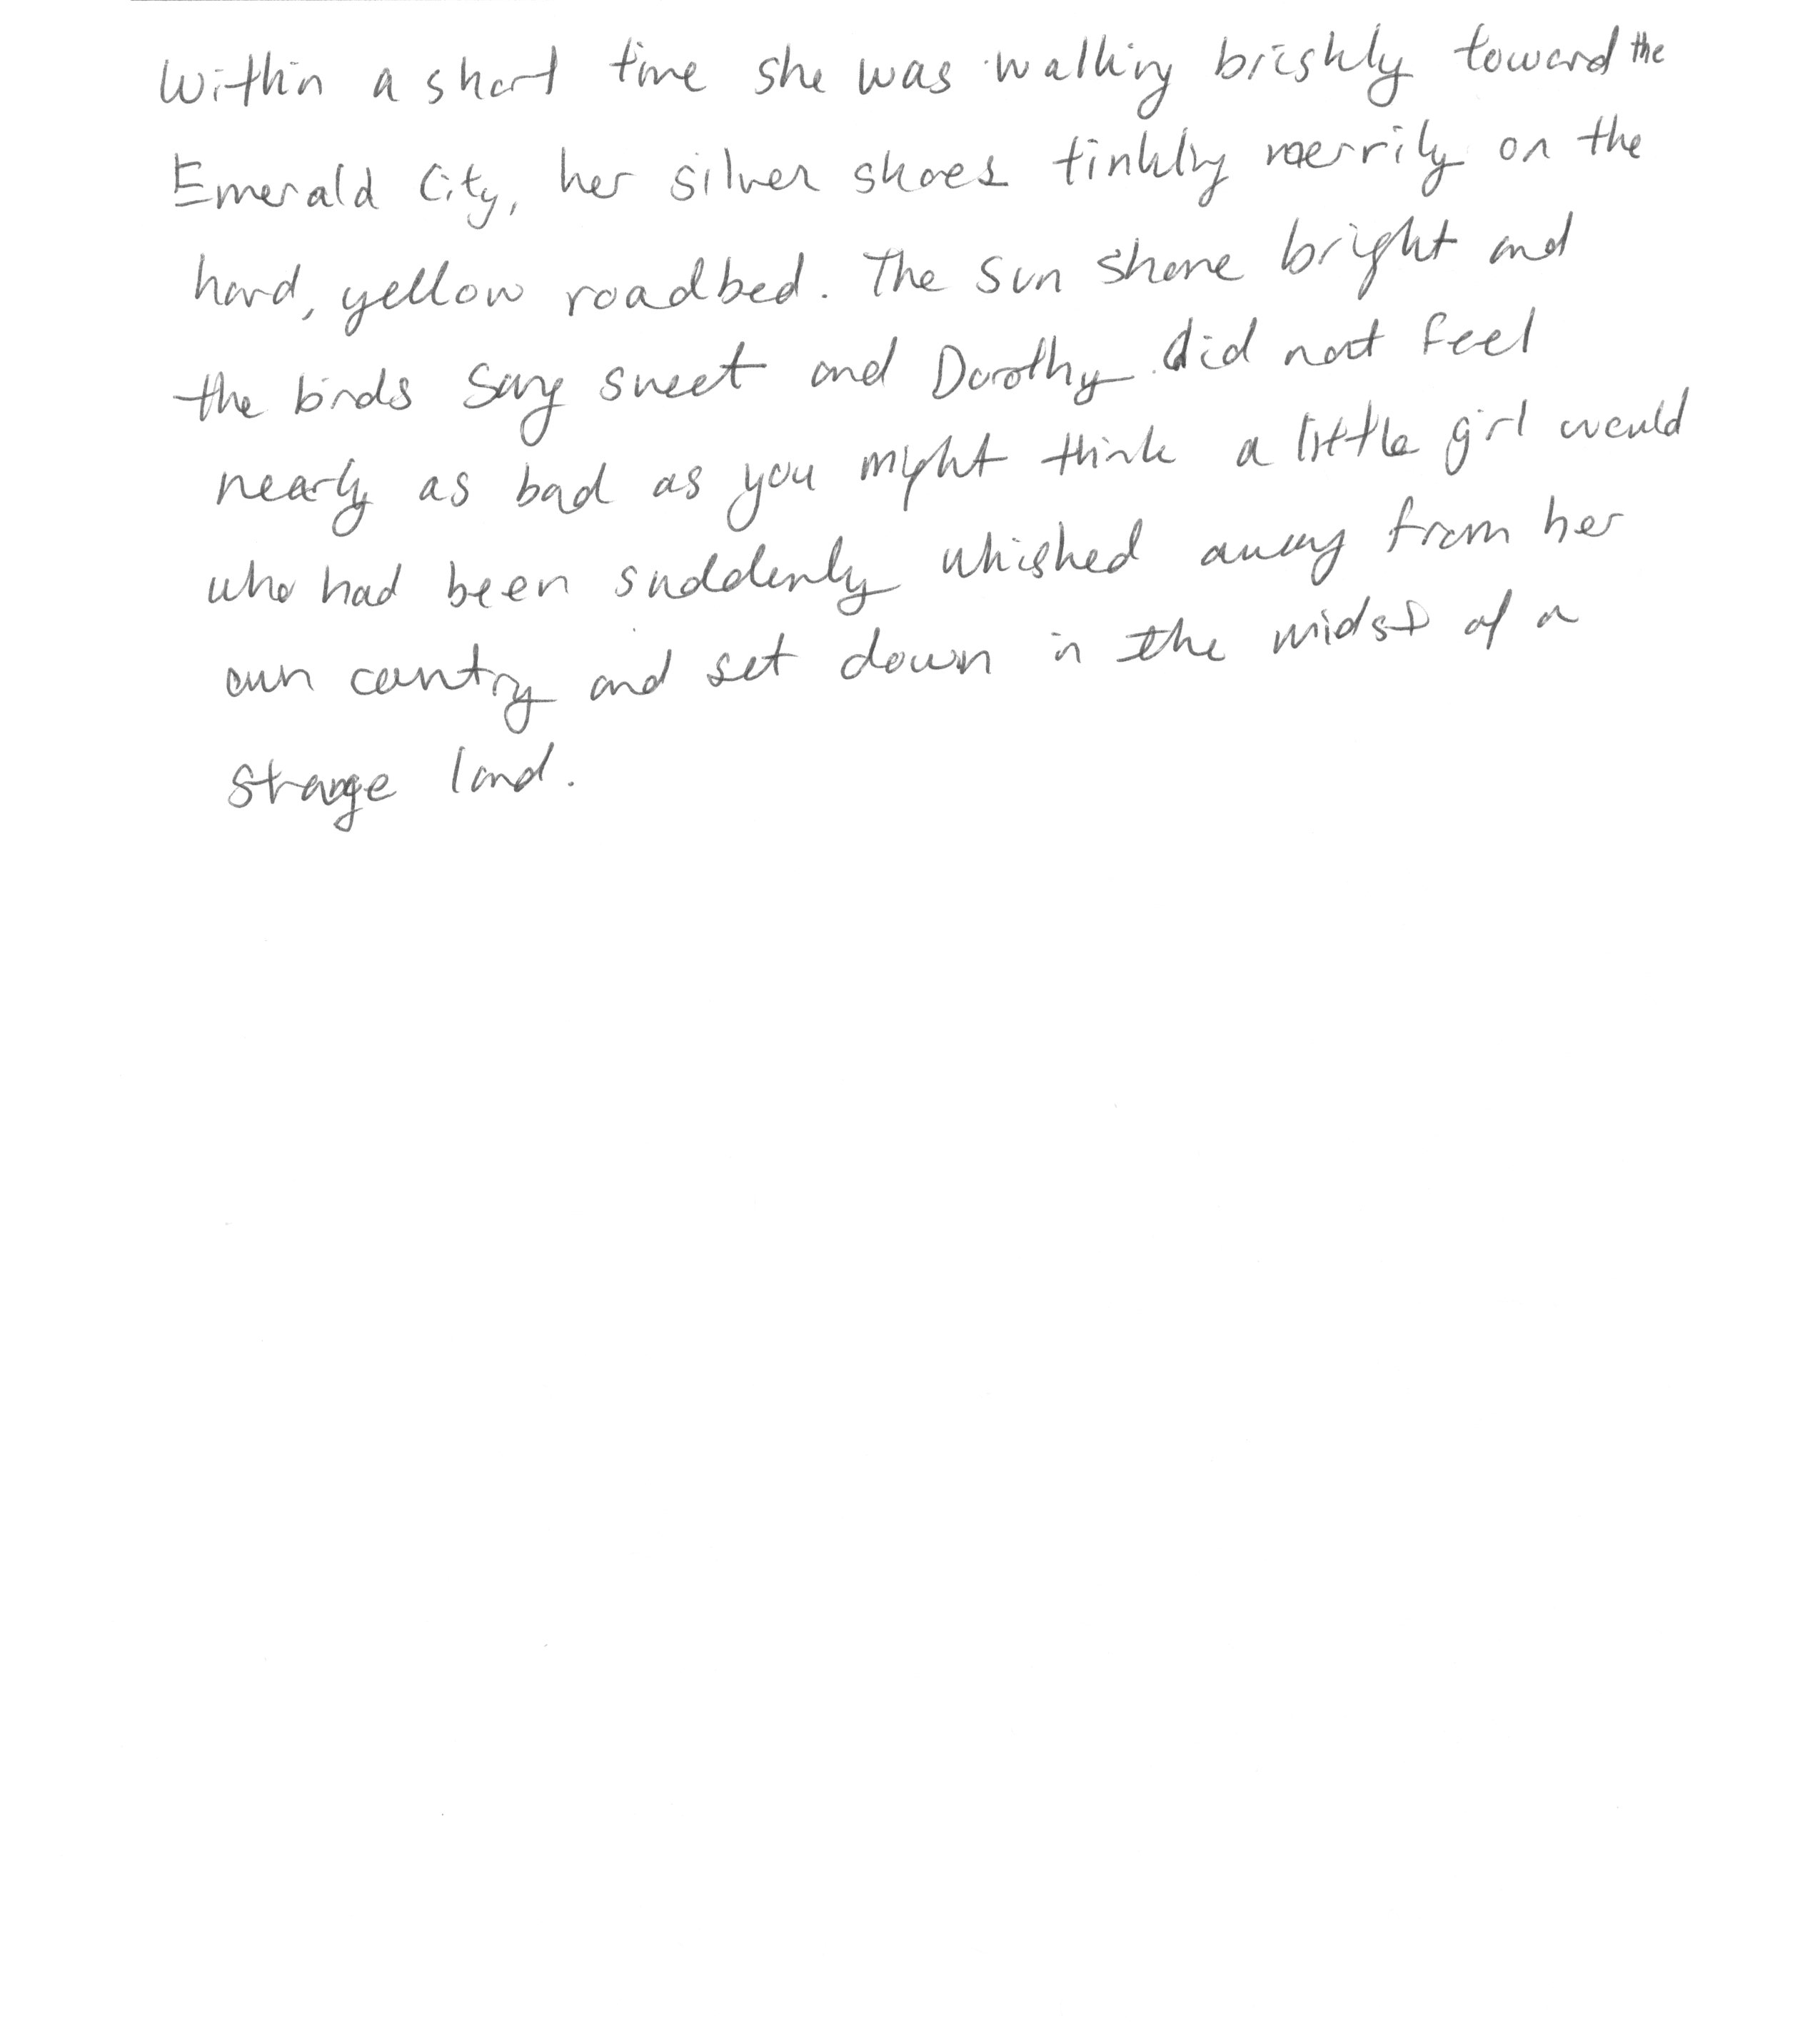 Within a short time she was walking briskly toward the
Emerald City, her silver shoes tinkling merrily on the
hard, yellow roadbed. The sun shone bright and
the birds sang sweet and Dorothy did not feel
nearly as bad as you might think a little girl would
who had been suddenly whished away from her
own country and set down in the midst of a
strange land.